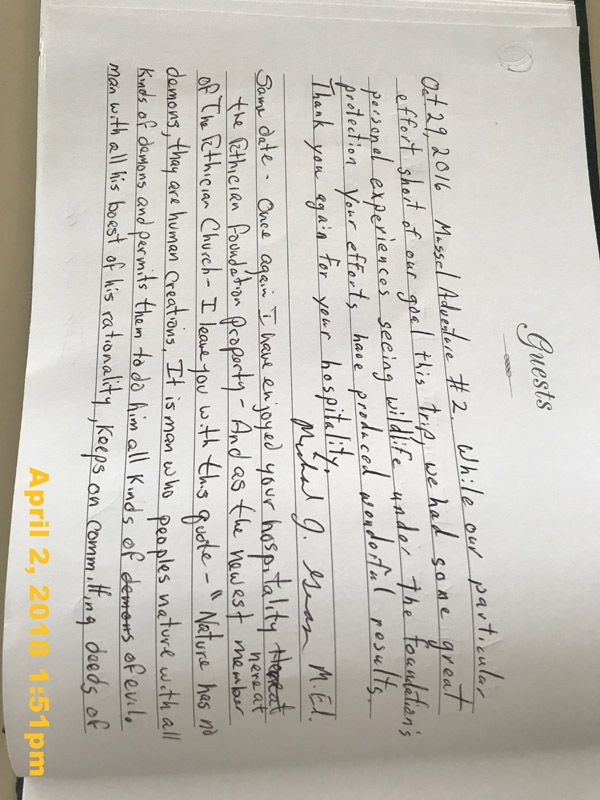 Guests
Oct 29, 2016 Mussel Adventure #2. While our particular
effort short of our goal this trip, we had some great
personal experiences seeing wildlife under the foundation's
protection. Your efforts have produced wonderful results.
Thank you again for your hospitality.
Michael J. M.Ed.
Same date - Once again I have enjoyed your hospitality Hereat
here at
the Pethician Foundation property - And as the newest member
of The Pethician Church - I leave you with this quote - "Nature has no
demons, they are human creations. It is man who peoples nature with all
kinds of demons and permits them to do him all kinds of demons of evil.
man with all his boast of his rationality, keeps on committing deeds of
April 2, 2018 1:51pm